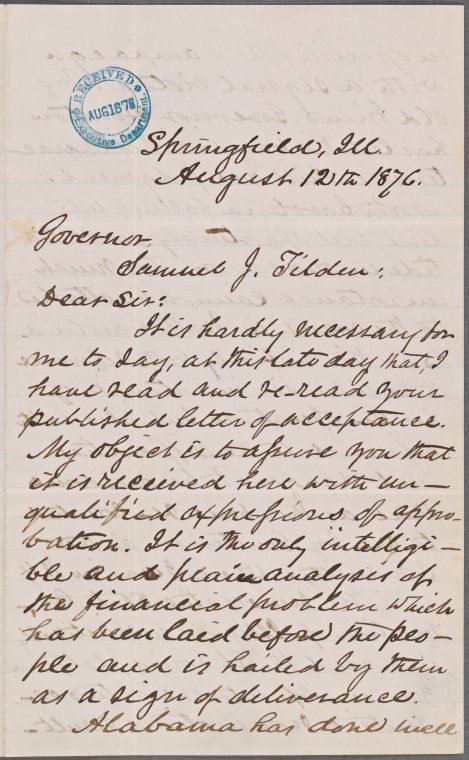 RECEIVED
AUG 16 76
Executive Department
Springfield, Ill.
August 12th 1876.
Governor,
Samuel J. Tilden;
Dear Sir:
It is hardly necessary for
me to say, at this late day that, I
have read and re-read your
published letter of acceptance.
My object is to assure you that
it is received here with un-
qualified expressions of appro-
bation. It is the only intelligi-
ble and plain analysis of
the financial problem which
has been laid before the peo-
ple and is hailed by them
as a sign of deliverance.
Alabama has done well